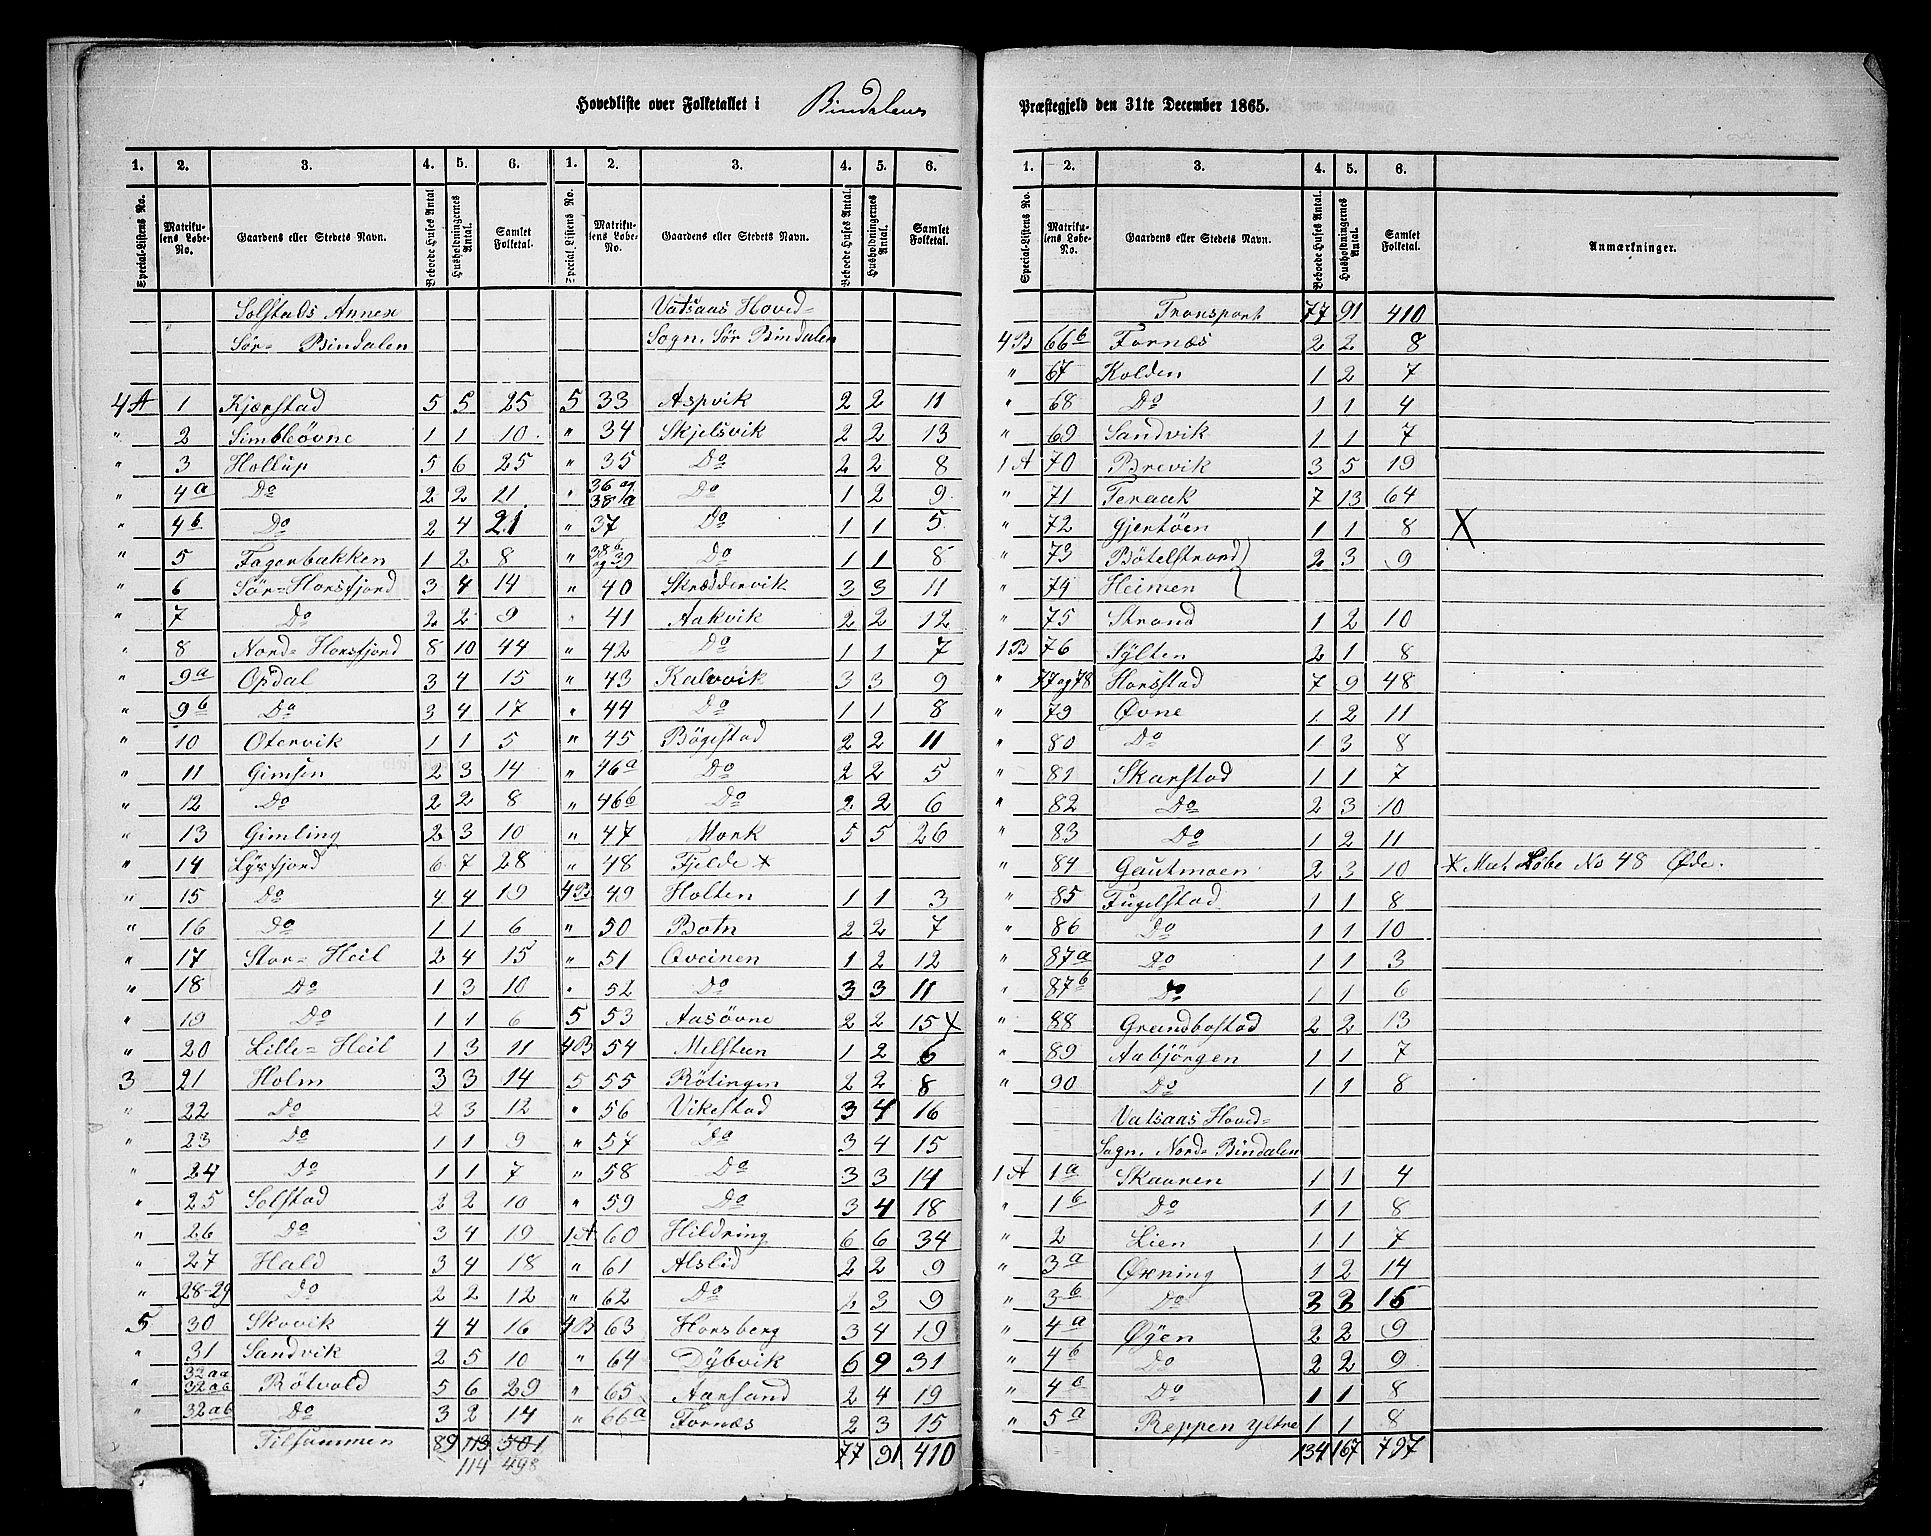 Hovedliste over Folketallet i Bindalens
1. 2. 3. 4. 5. 6. 1. 2. 3. 4. 5. 6.
Special-Listens No. Matrikulens Løbe-No. Gaardens eller Stedets Navn. Beboede Huses Antal. Husholdningernes Antal. Samlet Folketal. Special Listens No. Matrikulens Løbe-No. Gaardens eller Stedets Navn. Beboede Huses Antal. Husholdningernes Antal. Samlet Folketal.
Solstads Annex Vatsaas Hoved=
Sör= Bindalen Sogn, Sör Bindalen
4A 1 Kjærstad 5 5 25 5 33 Aspvik 2 2 11
" 2 Simbleøvne 1 1 10 " 34 Skjelsvik 2 2 13
" 3 Hollup 5 6 25 " 35 Do 2 2 8
" 4a Do 2 2 11 " 36 og 38a Do 1 2 9
" 4b Do 2 4 21 " 37 Do 1 1 5
" 5 Fagerbakken 1 2 8 " 38b og 39 Do 1 1 8
" 6 Sör=Horsfjord 3 4 14 " 40 Skræddervik 3 3 11
" 7 Do 2 2 9 " 41 Aakvik 2 2 12
" 8 Nord=Horsfjord 8 10 44 " 42 Do 1 1 7
" 9a Opdal 3 4 15 " 43 Kalvvik 3 3 9
" 9b Do 3 4 17 " 44 Do 1 1 8
" 10 Otervik 1 1 5 " 45 Bögestad 2 2 11
" 11 Gimsen 2 3 14 " 46a Do 2 2 5
" 12 Do 2 2 8 " 46b Do 2 2 6
" 13 Gimling 2 3 10 " 47 Mork 5 5 26
" 14 Lysfjord 6 7 28 " 48 Fjelde x
" 15 Do 4 4 19 4B 49 Holten 1 1 3
" 16 Do 1 1 6 " 50 Botn 2 2 7
" 17 Stor=Heil 2 4 15 " 51 Qveinen 1 2 12
" 18 Do 1 3 10 " 52 Do 3 3 11
" 19 Do 1 1 6 5 53 Aasövne 2 2 15 x
" 20 Lille=Heil 1 3 11 4B 54 Melsteen 1 2 6
3 21 Holm 3 3 14 5 55 Rötingen 2 2 8
" 22 Do 2 3 12 " 56 Vikestad 3 4 16
" 23 Do 1 1 9 " 57 Do 3 4 15
" 24 Do 1 1 7 " 58 Do 3 3 14
" 25 Solstad 2 2 10 " 59 Do 3 4 18
" 26 Do 3 4 19 1A 60 Hildring 6 6 34
" 27 Hald 3 4 18 " 61 Alslid 2 2 9
" 28-29 Do 2 2 12 " 62 Do 2 3 9
5 30 Skovik 4 4 16 4B 63 Horsberg 3 4 19
" 31 Sandvik 2 5 10 " 64 Dybvik 6 9 31
" 32aa 32ab Rötvold 5 6 29 " 65 Aarsand 2 4 19
" 32ab Do 3 2 14 " 66a Fornæs 2 3 15
Tilsammen 89 113 501 77 91 410
114 498
Præstegjeld den 31te December 1865.
1. 2. 3. 4. 5. 6.
Special-Listens No. Matrikulens Løbe-No. Gaardens eller Stedets Navn. Beboede Huses Antal. Husholdningernes Antal. Samlet Folketal. Anmærkninger.
Transport 77 91 410
4B 66b Fornæs 2 2 8
" 67 Kolden 1 2 7
" 68 Do 1 1 4
" 69 Sandvik 1 1 7
1A 70 Brevik 3 5 19
" 71 Teraak 7 13 64
" 72 Gjertöen 1 1 8 X
" 73 Bötelstrand 2 3 9
" 74 Heimen
" 75 Strand 1 2 10
1B 76 Sylten 2 1 8
" 77 og 78 Horsstad 7 9 48
" 79 Øvne 1 2 11
" 80 Do 1 3 8
" 81 Skarstad 1 1 7
" 82 Do 2 3 10
" 83 Do 1 2 11
" 84 Gautmoen 2 3 10 x Mat Løbe No 48 Øde.
" 85 Fugelstad 1 1 8
" 86 Do 1 1 10
" 87a Do 1 1 3
" 87b Do 1 1 6
" 88 Grandbostad 2 2 13
" 89 Aabjörgen 1 1 7
" 90 Do 1 1 8
Vatsaas Hoved=
Sogn, Nord=Bindalen
1A 1a Skaaren 1 1 4
" 1b Do 1 1 8
" 2 Lien 1 1 7
" 3a Øxning 1 2 14
" 3b Do 3 3 15
" 4a Øyen 2 2 9
" 4b Do 2 2 9
" 4c Do 1 1 8
" 5a Reppen ytre 1 1 8
134 167 797